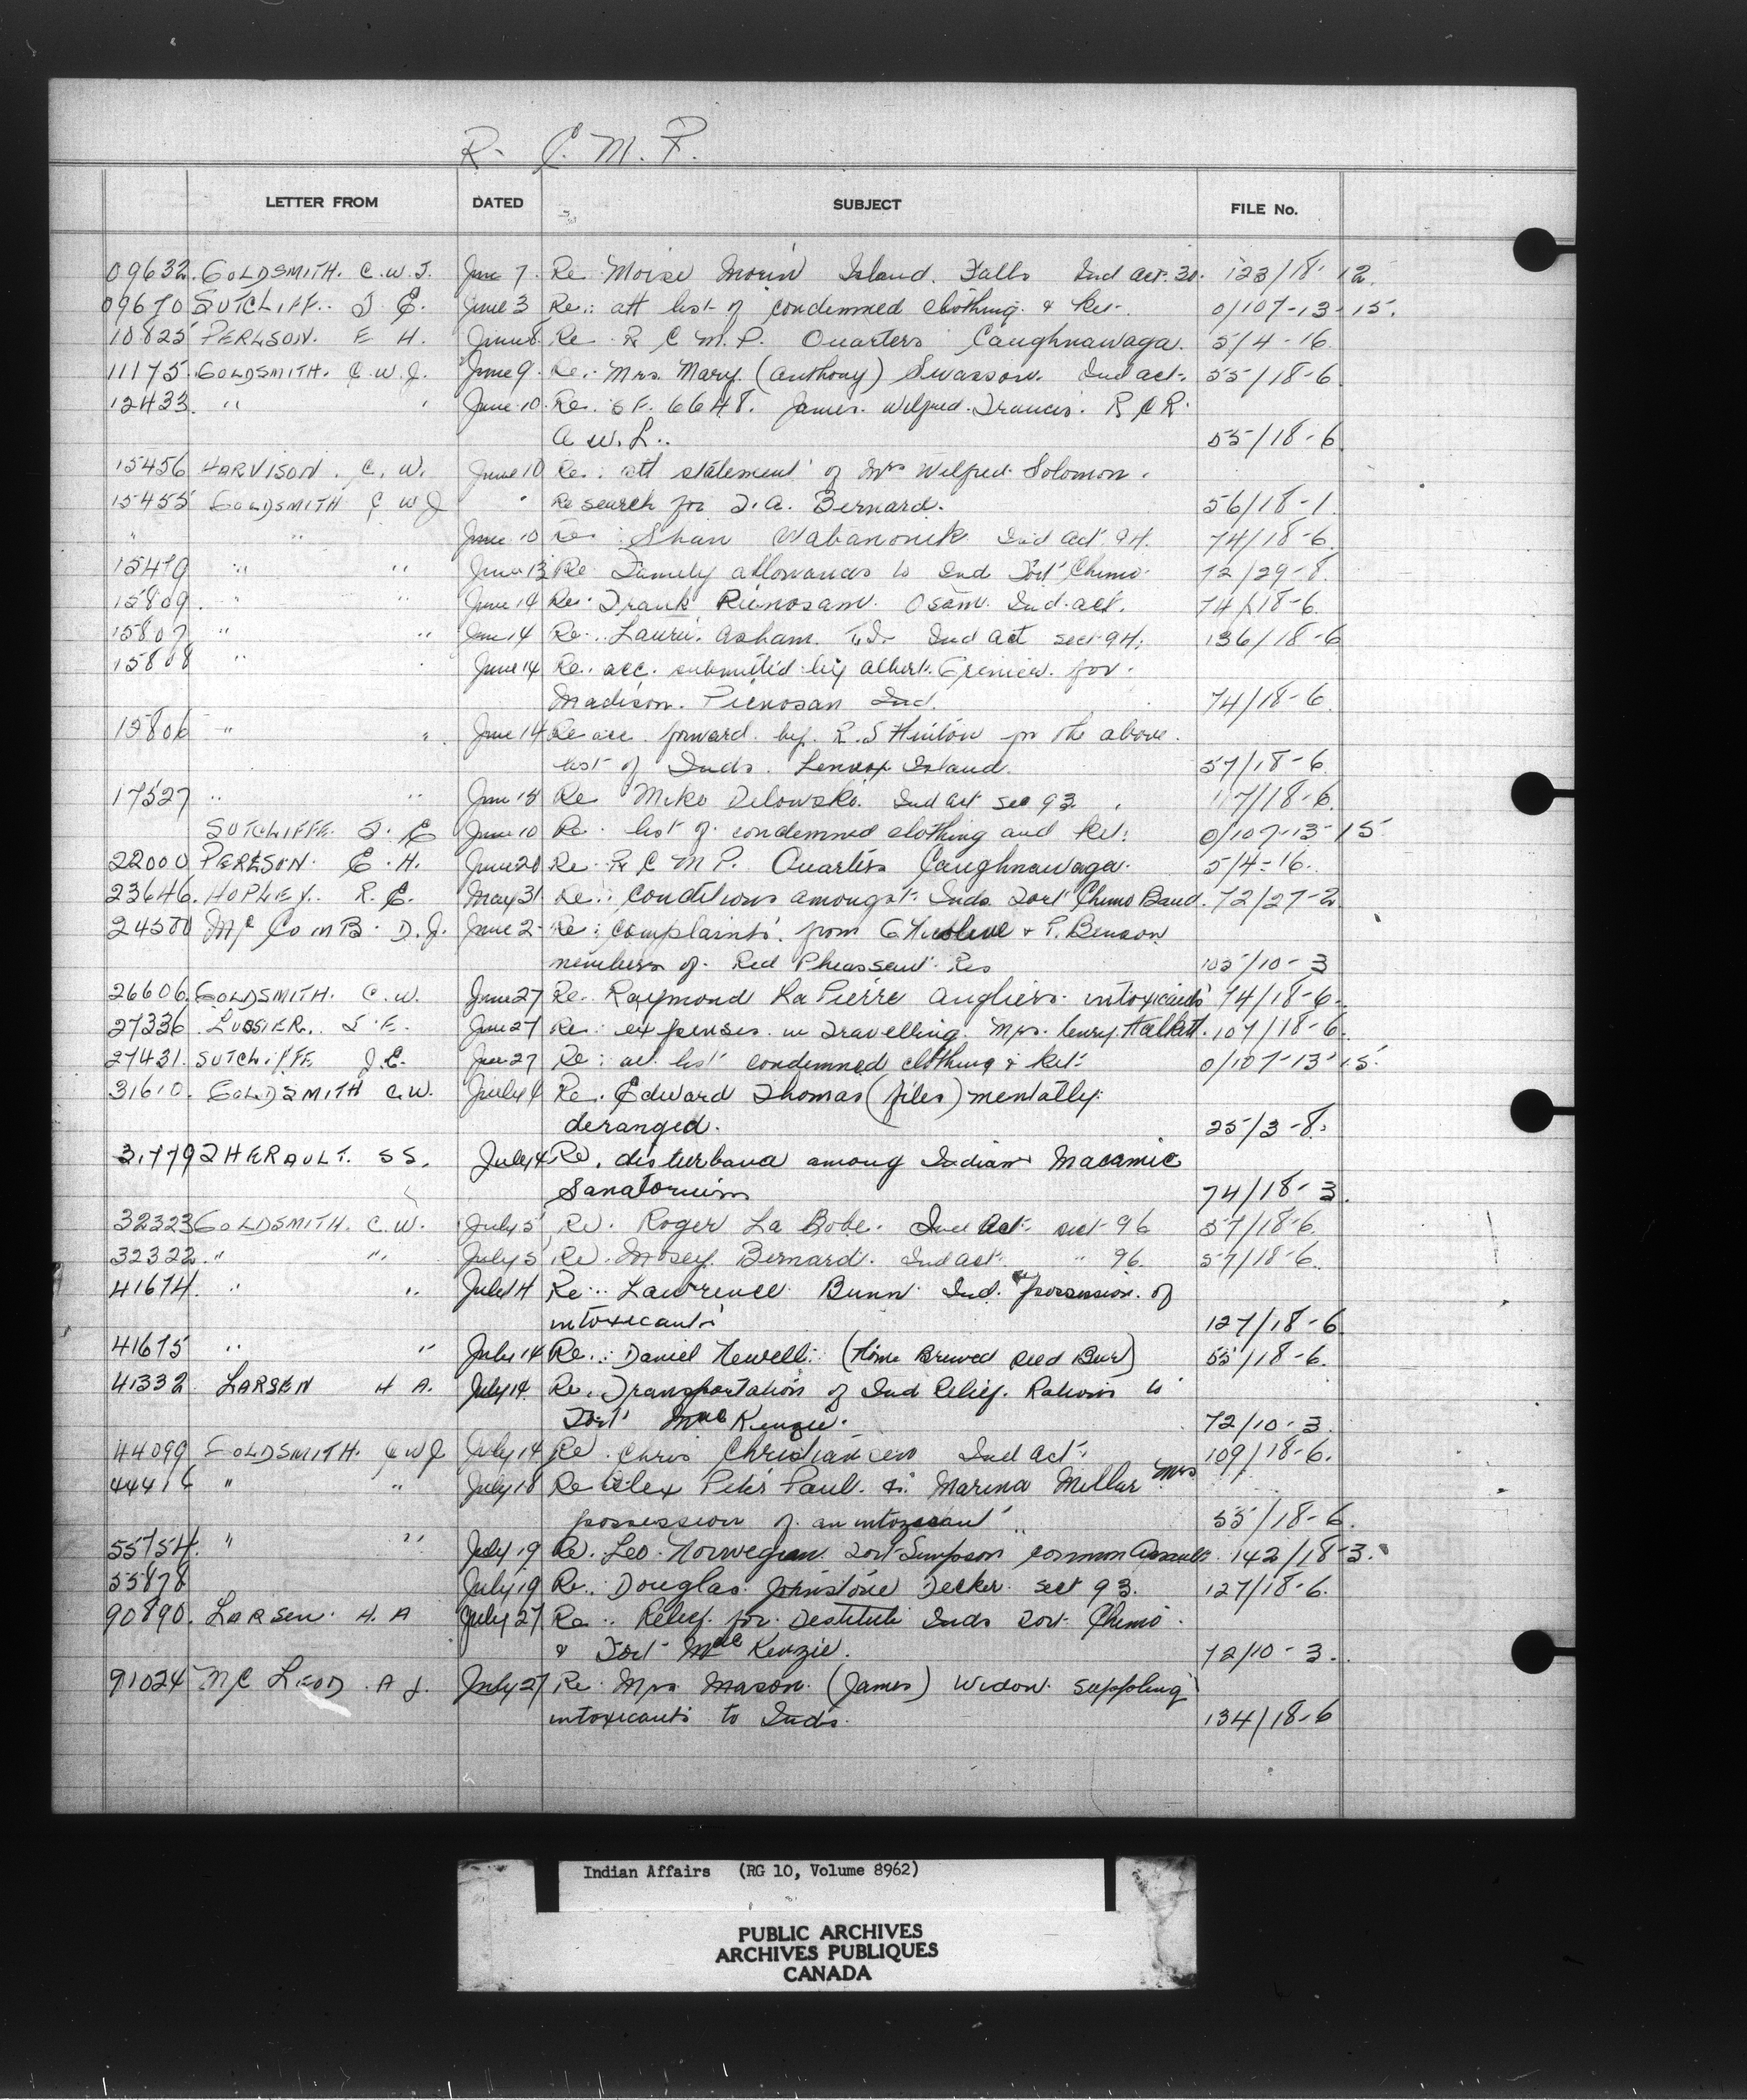 R. C. M. P.
LETTER FROM DATED SUBJECT FILE No.
09632. GOLDSMITH. C. W. J. June 7. Re Moise Morin Island. Falls Ind act. 123/18-12.
09670 SUTCLIFF. J. E. June 3 Re: att list of condemned clothing & Kit. 0/107-13-15.
10825 PERLSON. E H. June 8. Re R C M. P. Quarters Caughnawaga. 5/4-16
11175. GOLDSMITH. C. W. J. June 9. Re. Mrs. Mary. (Anthony) Swasson. Ind act. 55/18-6
12433. " " June 10. Re. 6648. James. Wilfred. Francis. R C R.
A W. L.. 55/18-6
15456 HARVISON. C. W. June 10 Re: att statement of Mrs Wilfred Solomon.
15455 GOLDSMITH C W J " Re search for J. A. Bernard. 56/18-1.
" " June 10 Re: Shan Wabanonik Ind act 94. 74/18-6.
15479 " " June 13 Re Family allowances to Ind Fort Chimo. 72/29-8.
15809. " " June 14 Re. Frank Osam. Ind. act. 74/18-6.
15807 " " June 14 Re. Asham. Ind act sect 94. 136/18-6
15808 " " June 14 Re. acc. submitted by Albert for.
Madison. Pienosan Ind. 74/18-6.
15806 " " June 14 Re acc. forward by. R. S Hinton for the above.
list of Inds. Lennox Island. 57/18-6.
17527 " " June 15 Re Miko Delowski. Ind act sec 93. 117/18-6.
SUTCLIFFE J. E June 10 Re. list of condemned clothing and kit. 0/107-13-15
22000 PERLSON. E. H. June 20 Re R C M P. Quarters Caughnawaga. 5/4-16.
23646. HOPLEY. R. E. May 31 Re: conditions amongst Inds. Fort Chimo Band. 72/27-2.
24580 Mc Comb. D. J. June 2. Re: complaints. from & P. Benson
members of. Red Pheasant Res 105/10-3
26606. GOLDSMITH. C. W. June 27 Re. Raymond La Pierre Angliers intoxicants 74/18-6.
27336 LUSSIER. J. E. June 27 Re: expenses in travelling. Mrs. Henry Halkett. 107/18-6.
27431. SUTCLIFFE J. E. June 27 Re: att list condemned clothing & kit. 0/107-13-15.
31610. GOLDSMITH C. W. July 4 Re. Edward Thomas (files) mentally
deranged. 25/3-8.
31779 THERAULT. S S. July 4 Re. disturbance among Indians Macamic
Sanatorium 74/18-3.
32323 GOLDSMITH. C. W. July 5 Re. Roger La Bobe. Ind Act. sect 96 57/18-6.
32322. " " July 5 Re. Mosey. Bernard. Ind act. " 96. 57/18-6.
41674. " " July 14 Re. Lawrence Bunn Ind. re possession of
intoxicants 127/18-6
41675 " " July 14 Re.: Daniel Newell. (Home Brewed Beer) 55/18-6.
41332 LARSEN H A. July 14. Re. Transportation of Ind Relief. Rations to
Fort MacKenzie. 72/10-3.
44099 GOLDSMITH. C W J July 14 Re. Chris Christiansen Ind Act. 109/18-6.
44416 " " July 18 Re Alex Peter Paul. & Marina Millar Mrs
possession of an intoxicant 55/18-6.
55754. " " July 19 Re. Leo Norwegian Fort Simpson common assault. 142/18-3.
55878 July 19 Re. Douglas Johnstone Decker sect 93. 127/18-6.
90890. Larsen. H. A July 27 Re. Relief. for. destitute Inds Fort Chimo.
& Fort MacKenzie. 72/10-3.
91024 Mc LEOD. A J. July 27 Re. Mrs. Mason. (James) Widow. suppling
intoxicants to Inds. 134/18-6
Indian Affairs (RG 10, Volume 8962)
PUBLIC ARCHIVES
ARCHIVES PUBLIQUES
CANADA